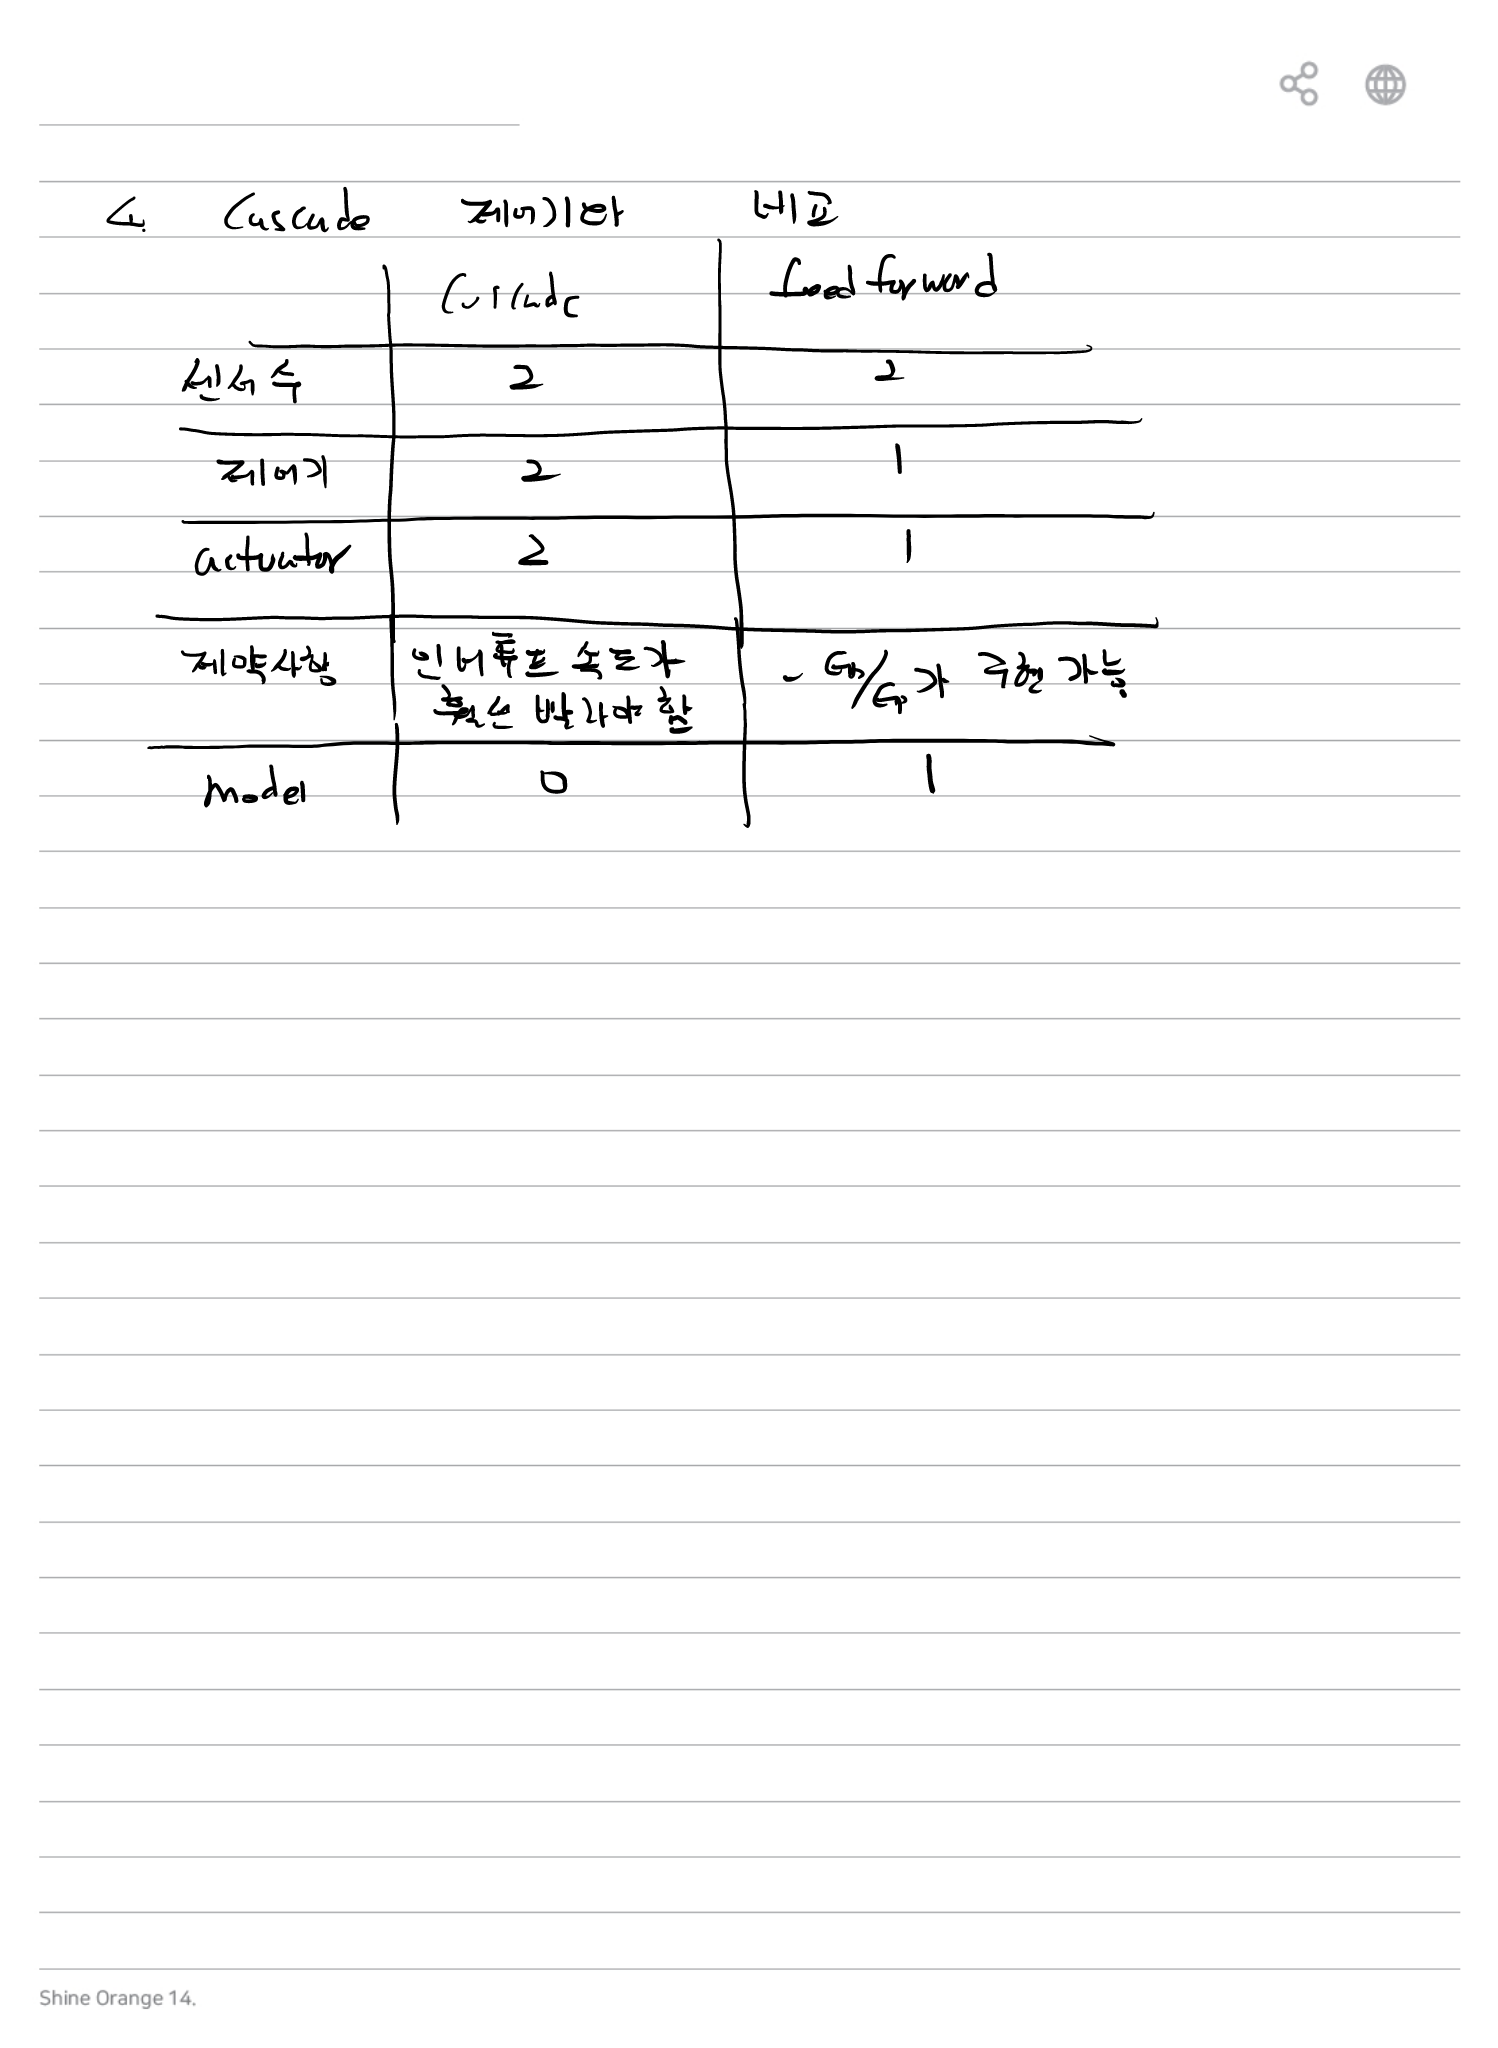 4. Cascade 제어기와 비교
Cascade feed forward
센서 수 2 2
제어기 2 1
actuator 2 1
제약사항 인너루프 속도가 훨신 빨라야 함 - GD/GP가 구현 가능
model 0 1
Shine Orange 14.